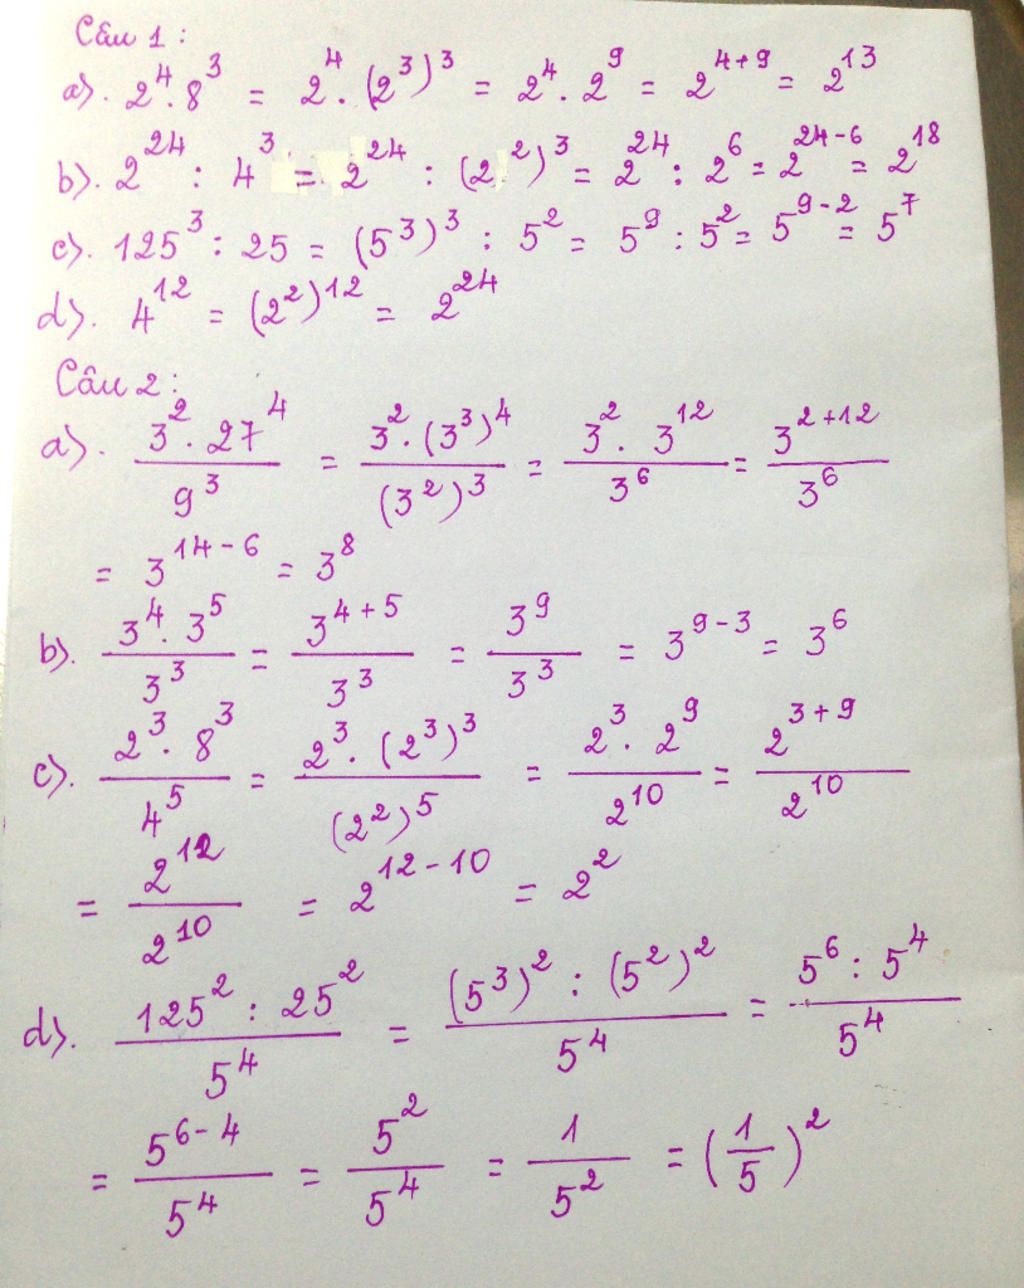 Câu 1 :
a). 2^4 . 8^3 = 2^4 . (2^3)^3 = 2^4 . 2^9 = 2^{4+9} = 2^{13}
b). 2^{24} : 4^3 = 2^{24} : (2^2)^3 = 2^{24} : 2^6 = 2^{24-6} = 2^{18}
c). 125^3 : 25 = (5^3)^3 : 5^2 = 5^9 : 5^2 = 5^{9-2} = 5^7
d). 4^{12} = (2^2)^{12} = 2^{24}
Câu 2 :
a). \frac{3^2 . 27^4}{9^3} = \frac{3^2 . (3^3)^4}{(3^2)^3} = \frac{3^2 . 3^{12}}{3^6} = \frac{3^{2+12}}{3^6}
= 3^{14-6} = 3^8
b). \frac{3^4 . 3^5}{3^3} = \frac{3^{4+5}}{3^3} = \frac{3^9}{3^3} = 3^{9-3} = 3^6
c). \frac{2^3 . 8^3}{4^5} = \frac{2^3 . (2^3)^3}{(2^2)^5} = \frac{2^3 . 2^9}{2^{10}} = \frac{2^{3+9}}{2^{10}}
= \frac{2^{12}}{2^{10}} = 2^{12-10} = 2^2
d). \frac{125^2 : 25^2}{5^4} = \frac{(5^3)^2 : (5^2)^2}{5^4} = \frac{5^6 : 5^4}{5^4}
= \frac{5^{6-4}}{5^4} = \frac{5^2}{5^4} = \frac{1}{5^2} = (\frac{1}{5})^2